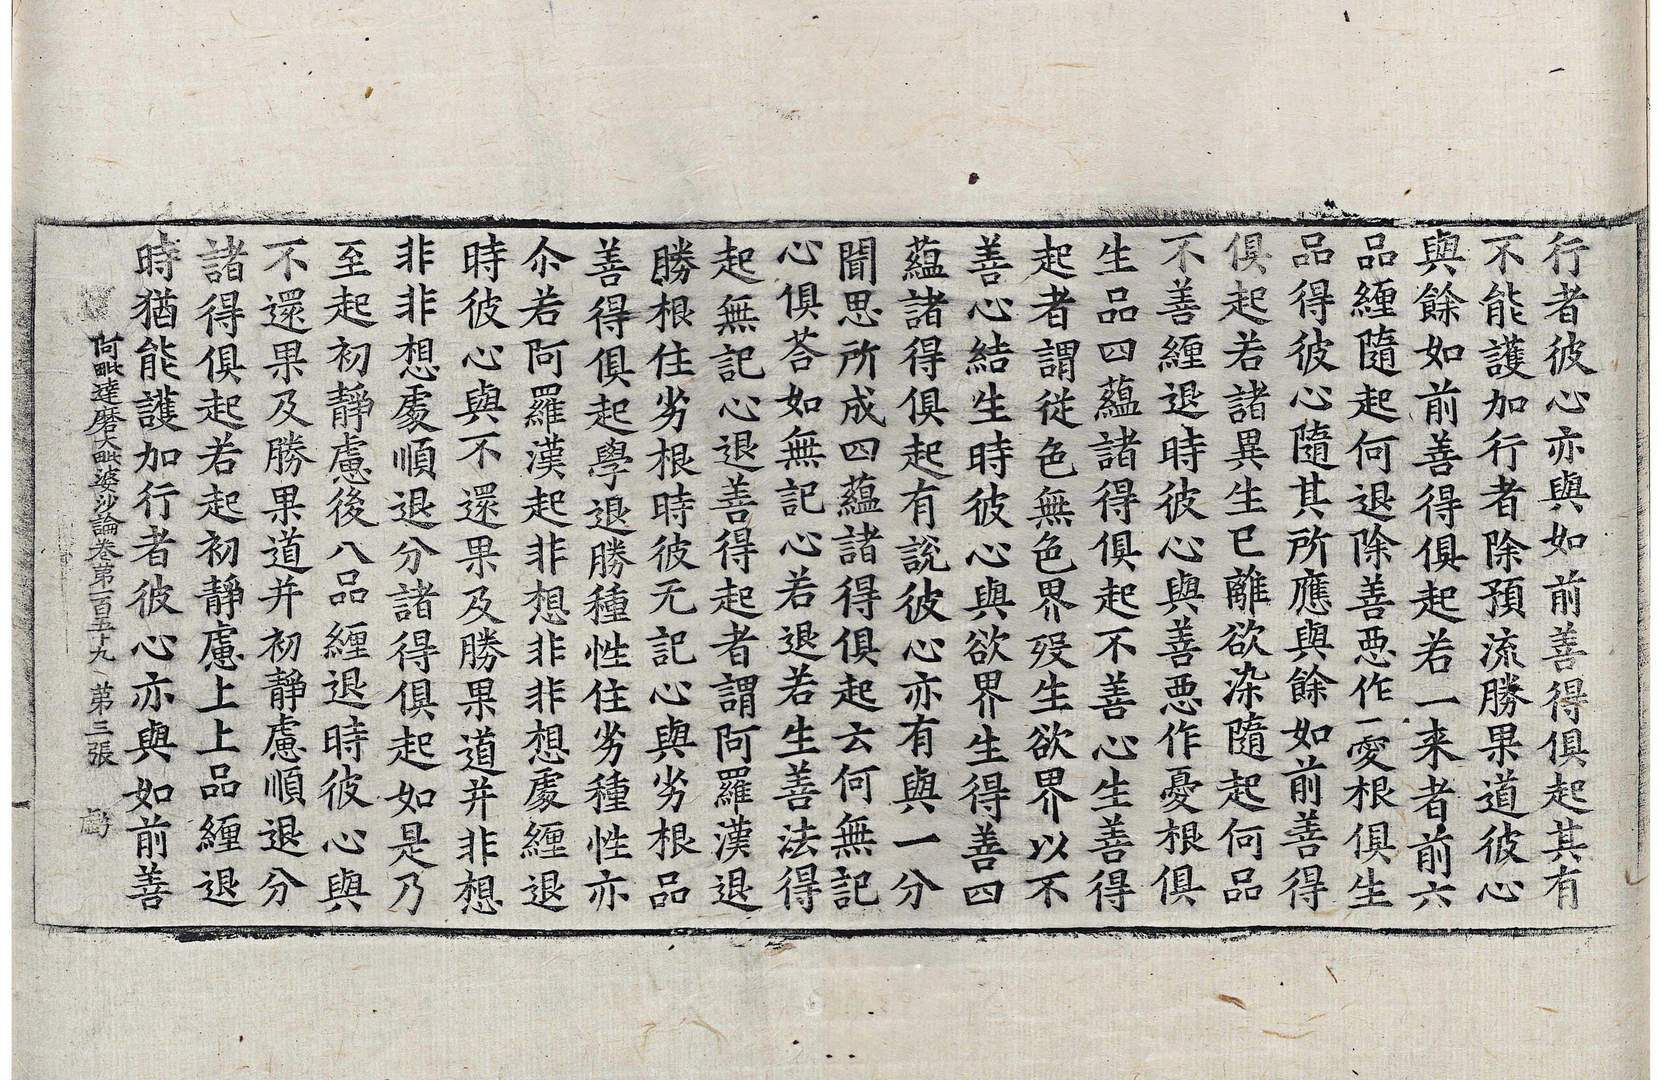 行者彼心亦與如前善得俱起其有
不能護加行者除預流勝果道彼心
與餘如前善得俱起若一来者前六
品纏隨起何退除善悪作一憂根俱生
品得彼心隨其所應與餘如前善得
俱起若諸異生已離欲染隨起何品
不善纏退時彼心與善悪作憂根俱
生品四蘊諸得俱起不善心生善得
起者謂從色無色界歿生欲界以不
善心結生時彼心與欲界生得善四
蘊諸得俱起有說彼心亦有與一分
聞思所成四蘊諸得俱起云何無記
心俱荅如無記心若退若生善法得
起無記心退善得起者謂阿羅漢退
勝根住劣根時彼无記心與劣根品
善得俱起學退勝種性住劣種性亦
尒若阿羅漢起非想非非想處纏退
時彼心與不還果及勝果道并非想
非非想處順退分諸得俱起如是乃
至起初靜慮後八品纏退時彼心與
不還果及勝果道并初靜慮順退分
諸得俱起若起初靜慮上上品纏退
時猶能護加行者彼心亦與如前善
阿毗達磨大毗婆沙論卷第一百五十九 第三張